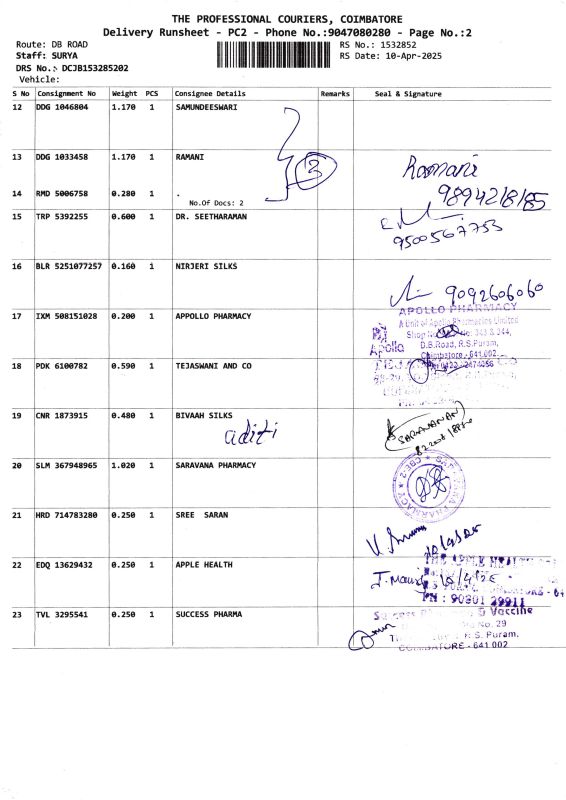 THE PROFESSIONAL COURIERS, COIMBATORE
Delivery Runsheet - PC2 - Phone No.:9047080280 - Page No.:2
Route: DB ROAD RS No.: 1532852
Staff: SURYA RS Date: 10-Apr-2025
DRS No.: DCJB153285202
Vehicle:
S No Consignment No Weight PCS Consignee Details Remarks Seal & Signature
12 DDG 1046804 1.170 1 SAMUNDEESWARI
13 DDG 1033458 1.170 1 RAMANI
3
Ramani
14 RMD 5006758 0.280 1 .
No.Of Docs: 2
9894218185
15 TRP 5392255 0.600 1 DR. SEETHARAMAN
9500567753
16 BLR 5251077257 0.160 1 NIRJERI SILKS
9092606060
17 IXM 508151028 0.200 1 APPOLLO PHARMACY
APOLLO PHARMACY
A Unit of Apollo Pharmacies Limited
Shop No. 343 & 344,
Apollo D.B.Road, R.S.Puram,
Coimbatore - 641 002
18 PDK 6100782 0.590 1 TEJASWANI AND CO
19 CNR 1873915 0.480 1 BIVAAH SILKS
aditi
SARAVANAN
20 SLM 367948965 1.020 1 SARAVANA PHARMACY
PHARMACY
CBE-2
21 HRD 714783280 0.250 1 SREE SARAN
22 EDQ 13629432 0.250 1 APPLE HEALTH
THE APPLE HEALTH
PH : 90301 29911
23 TVL 3295541 0.250 1 SUCCESS PHARMA
Success & Vaccine
No. 29
R.S. Puram,
COIMBATORE - 641 002